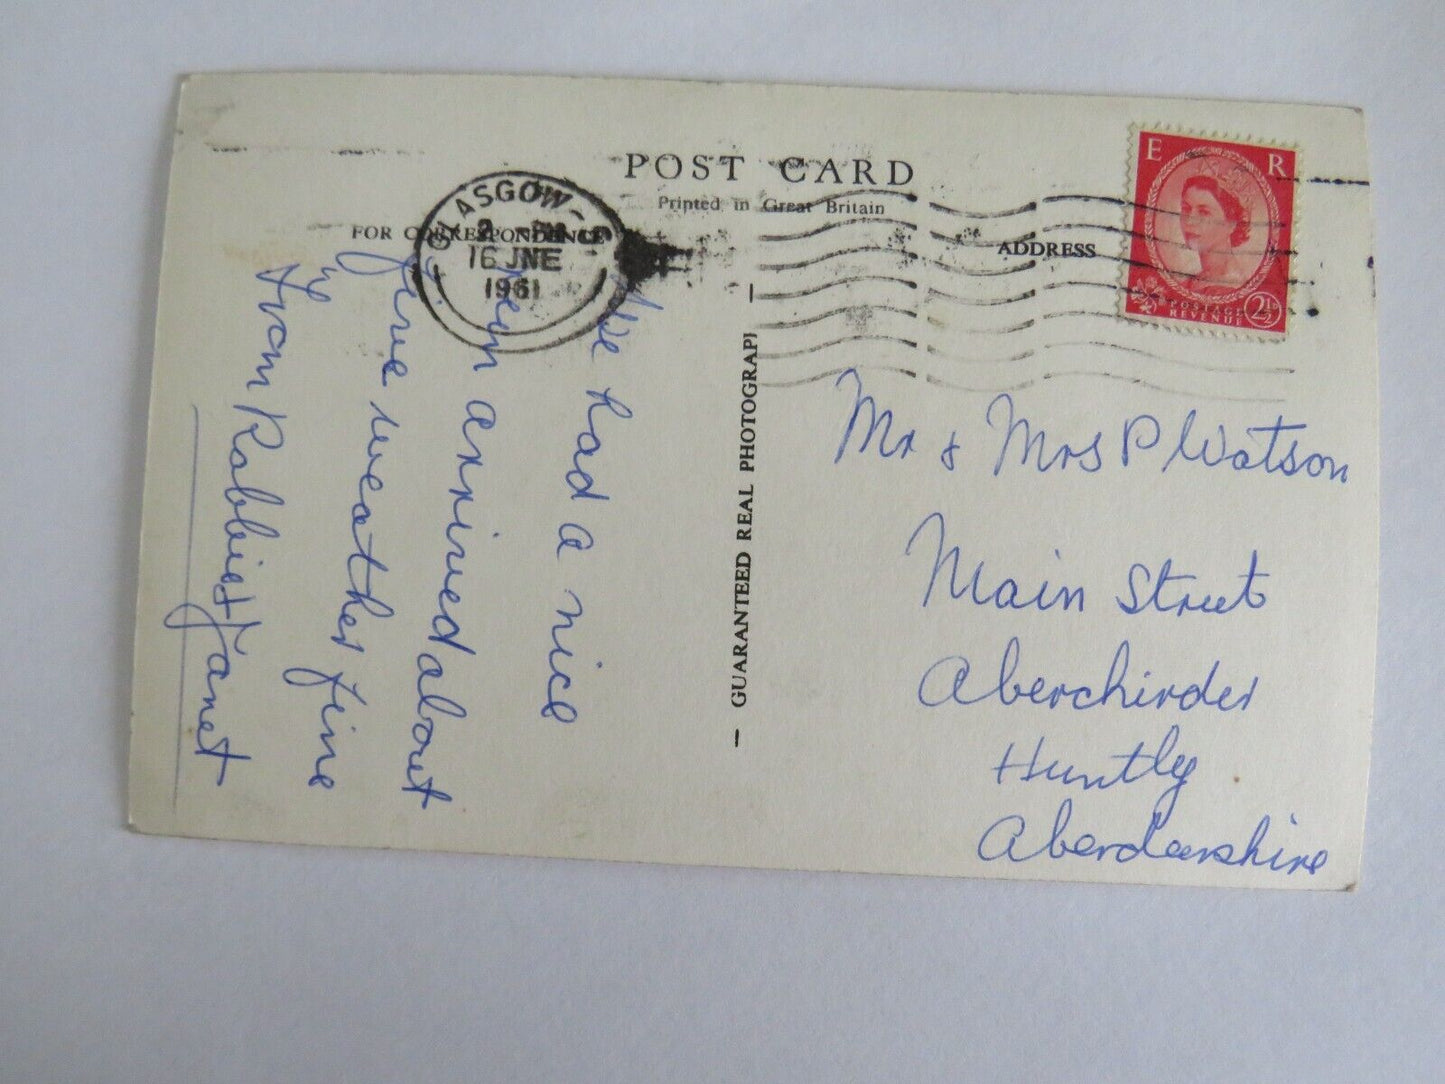 POST CARD
Printed in Great Britain
FOR CORRESPONDENCE
ADDRESS
GLASGOW
16 JNE
1961
E R
POSTAGE
REVENUE
2½D
GUARANTEED REAL PHOTOGRAPH
We had a nice
arrived about
five weather fine
From Rabbie & Janet
Mr & Mrs P Watson
Main Street
Aberchirder
Huntly
Aberdeenshire